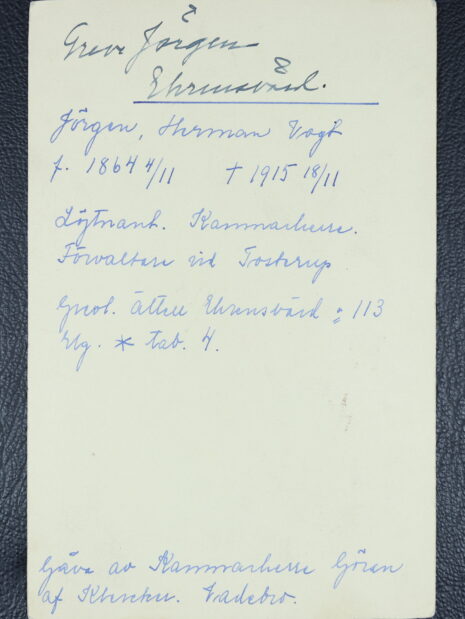 Greve Jörgen
Ehrensvärd.
Jörgen, Herman Vogt
f. 1864 4/11 † 1915 18/11
Löjtnant. Kammarherre.
Förvaltare vid Tosterup
Grevl. ätten Ehrensvärd : 113
* tab. 4.
Gåva av Kammarherre Göran
af Klercker. Vadebro.